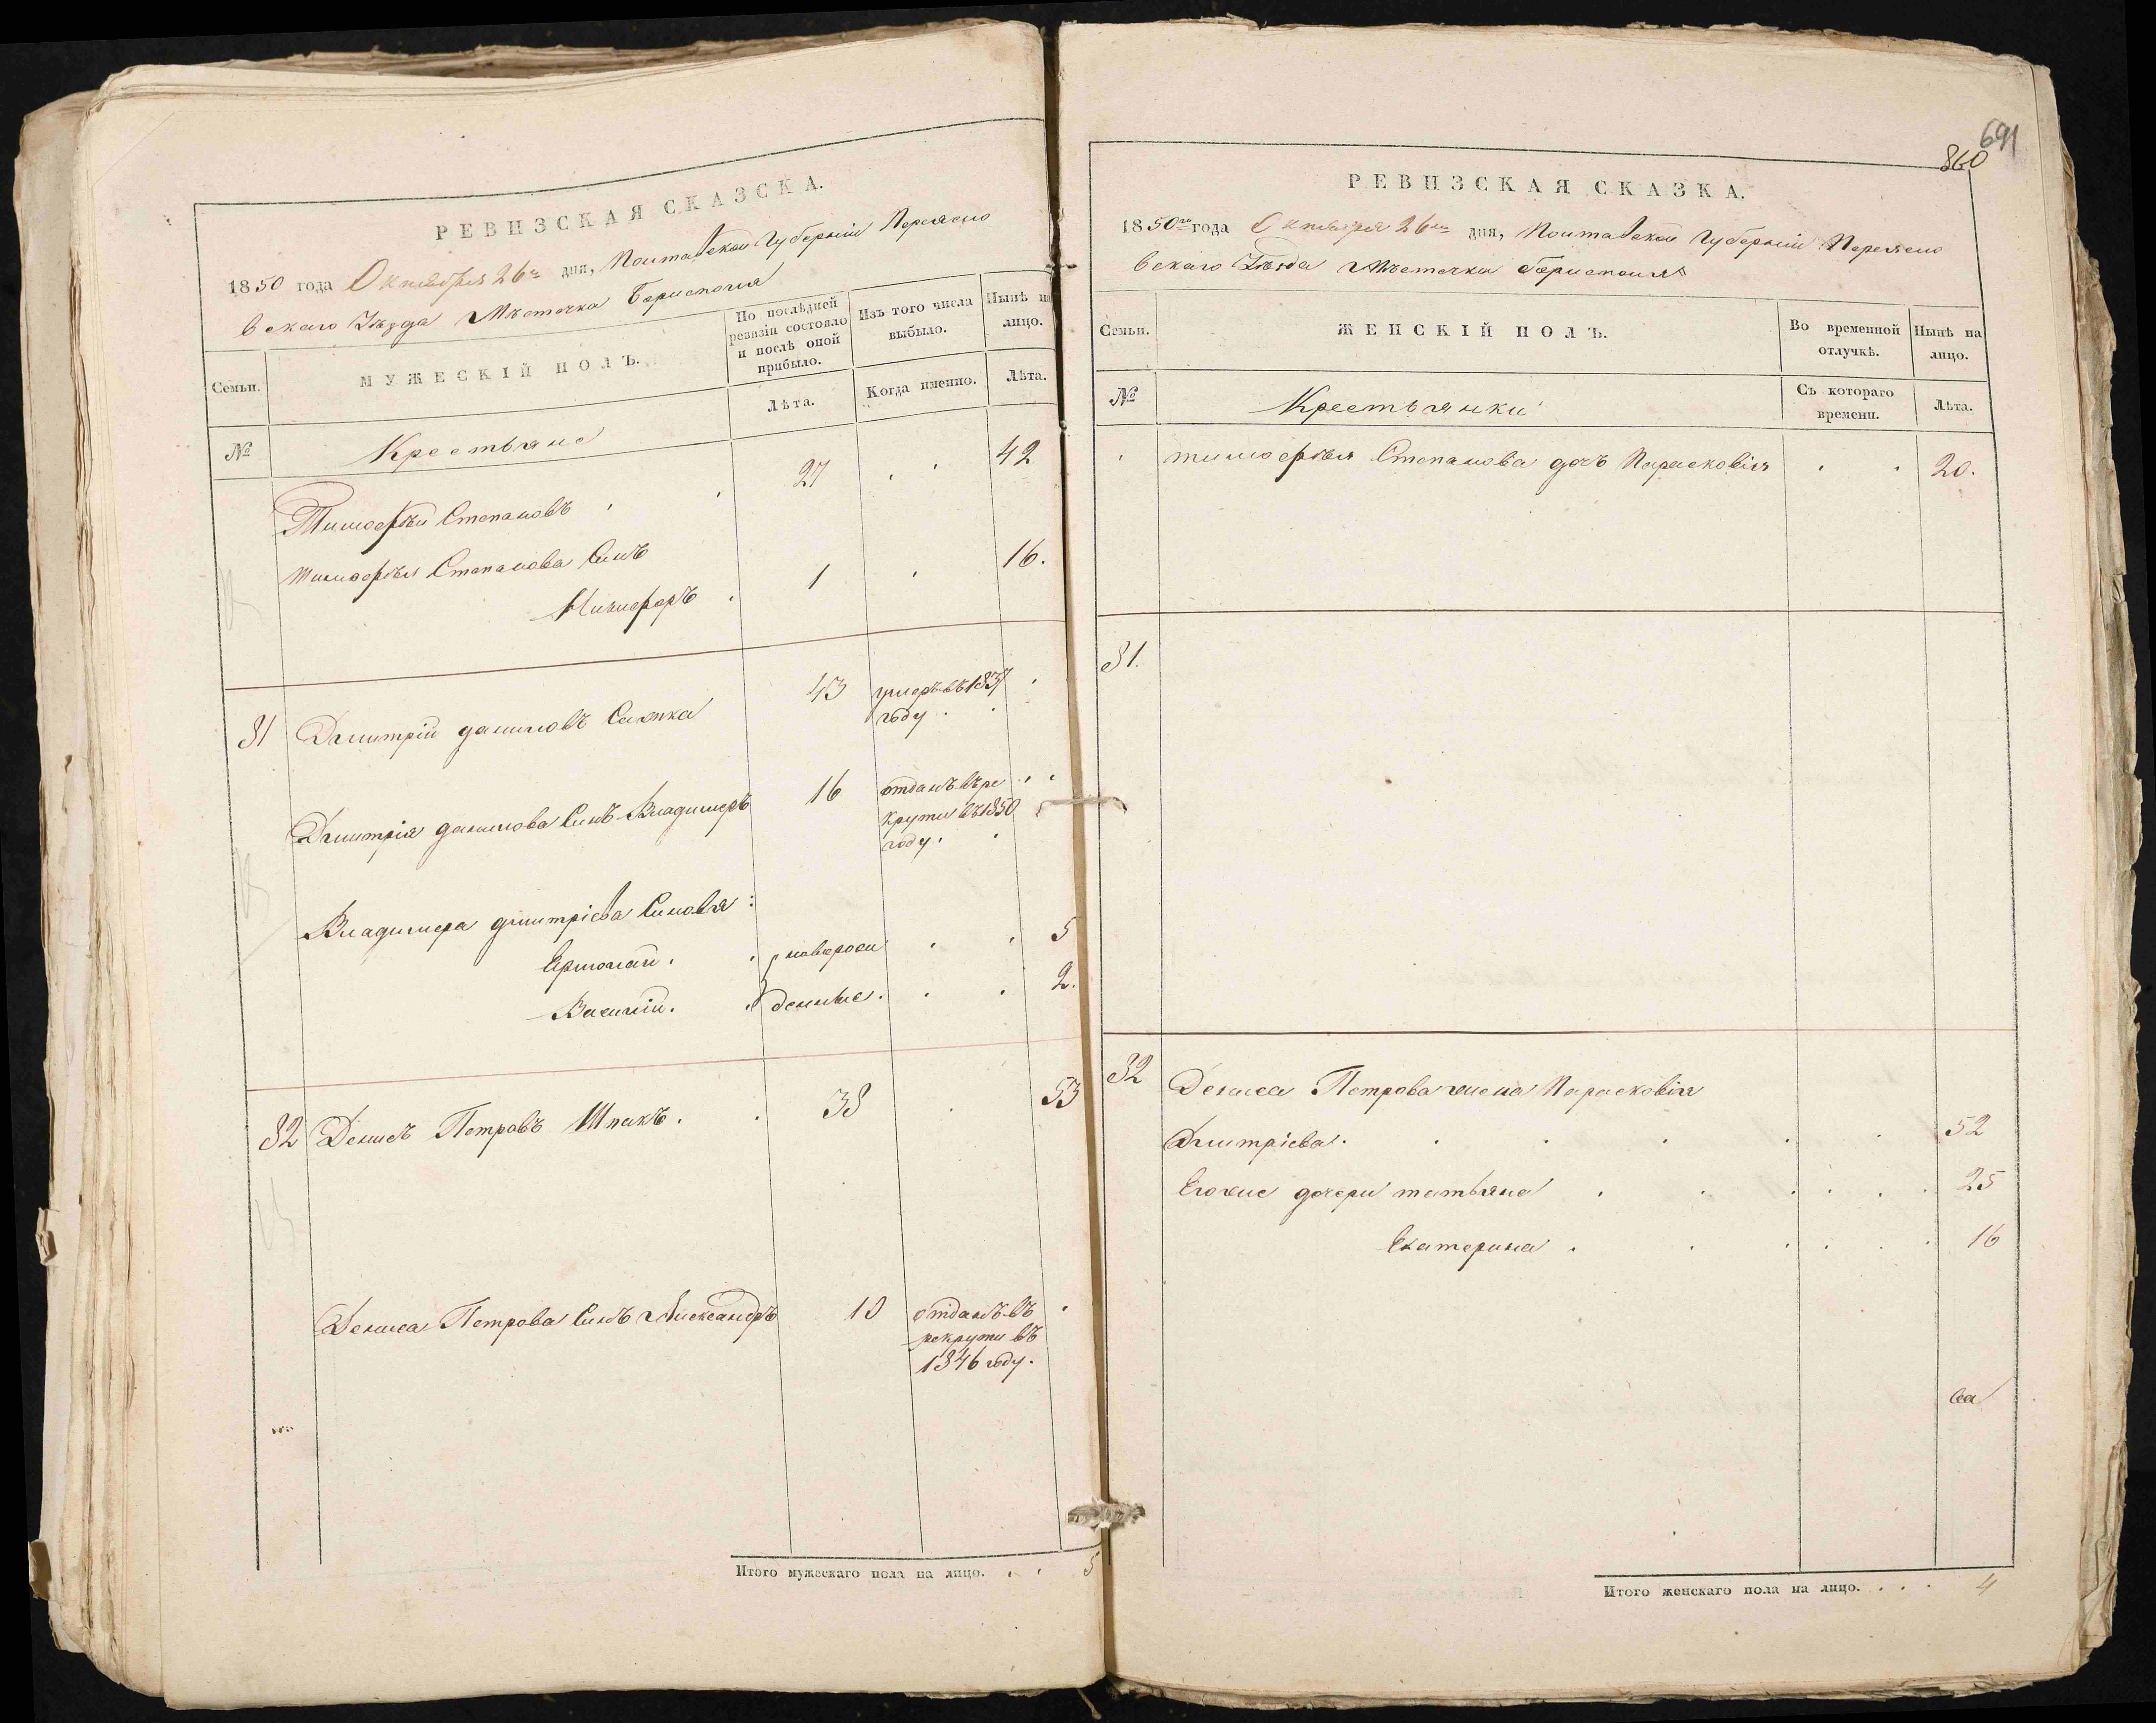 РЕВИЗСКАЯ СКАЗСКА.
1850 года Октября 26го дня, Полтавской Губерніи Переясло
вскаго Уезда Мѣстечка Борисполя
Семьи.
МУЖЕСКІЙ ПОЛЪ.
По послѣдней ревизіи состояло и послѣ оной прибыло.
Изъ того числа выбыло.
Нынѣ на лицо.
№
Крестьяне
Лѣта.
Когда именно.
Лѣта.
Тимофѣй Степановъ 27 42
тимофѣя Степанова Сынъ
Никифоръ 1 16.
31 Дмитрій даниловъ 43 умеръ въ 1837
году
Дмитрія данилова Сынъ Владимеръ 16 отданъ въ ре
крути въ 1850
году.
Владимера дмитріева Синовя:
Ермолай. новорож 5
Василій. денные. 2.
32 Денисъ Петровъ Шпакъ. 38 53
Дениса Петрова Сынъ Александръ 10 отданъ въ
рекрути въ
1846 году.
Итого мужескаго пола на лицо. 5
691
860
РЕВИЗСКАЯ СКАЗКА.
1850го года Октября 26го дня, Полтавской Губерніи Переясло
вскаго Уѣзда Мѣстечка Борисполя
Семьи.
ЖЕНСКІЙ ПОЛЪ.
Во временной отлучкѣ.
Нынѣ на лицо.
№
Крестьянки
Съ котораго времени.
Лѣта.
тимофѣя Степанова дочъ Парасковія 20.
31.
32 Дениса Петрова жена Парасковія
Дмитріева. 52
Егоже дочери татьяна 25
Екатерина 16
Итого женскаго пола на лицо. . . . 4